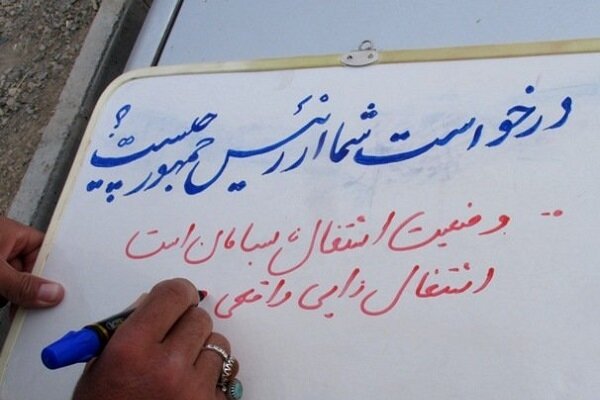 درخواست شما از رئیس جمهور چیست؟
.. وضعیت اشتغال نابسامان است
اشتغال زایی واقعی